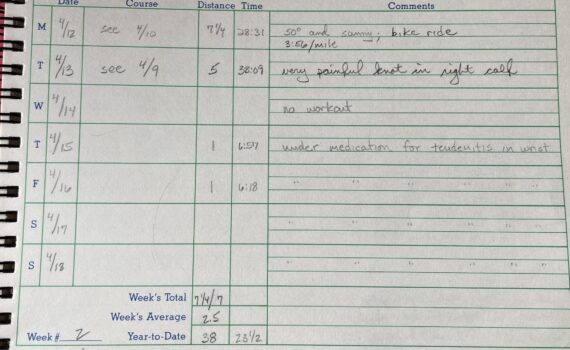 Date Course Distance Time Comments
M 4/12 see 4/10 7 1/4 28:31 50° and sunny; bike ride
3:56/mile
T 4/13 see 4/9 5 38:09 very painful knot in right calf
W 4/14 no workout
T 4/15 1 under medication for tendenitis in wrist
F 4/16 1 6:18 " " " " " "
S 4/17 " " " " " "
S 4/18 " " " " " "
Week's Total 7 1/4/7
Week's Average 2.5
Week # 2 Year-to-Date 38 23 1/2